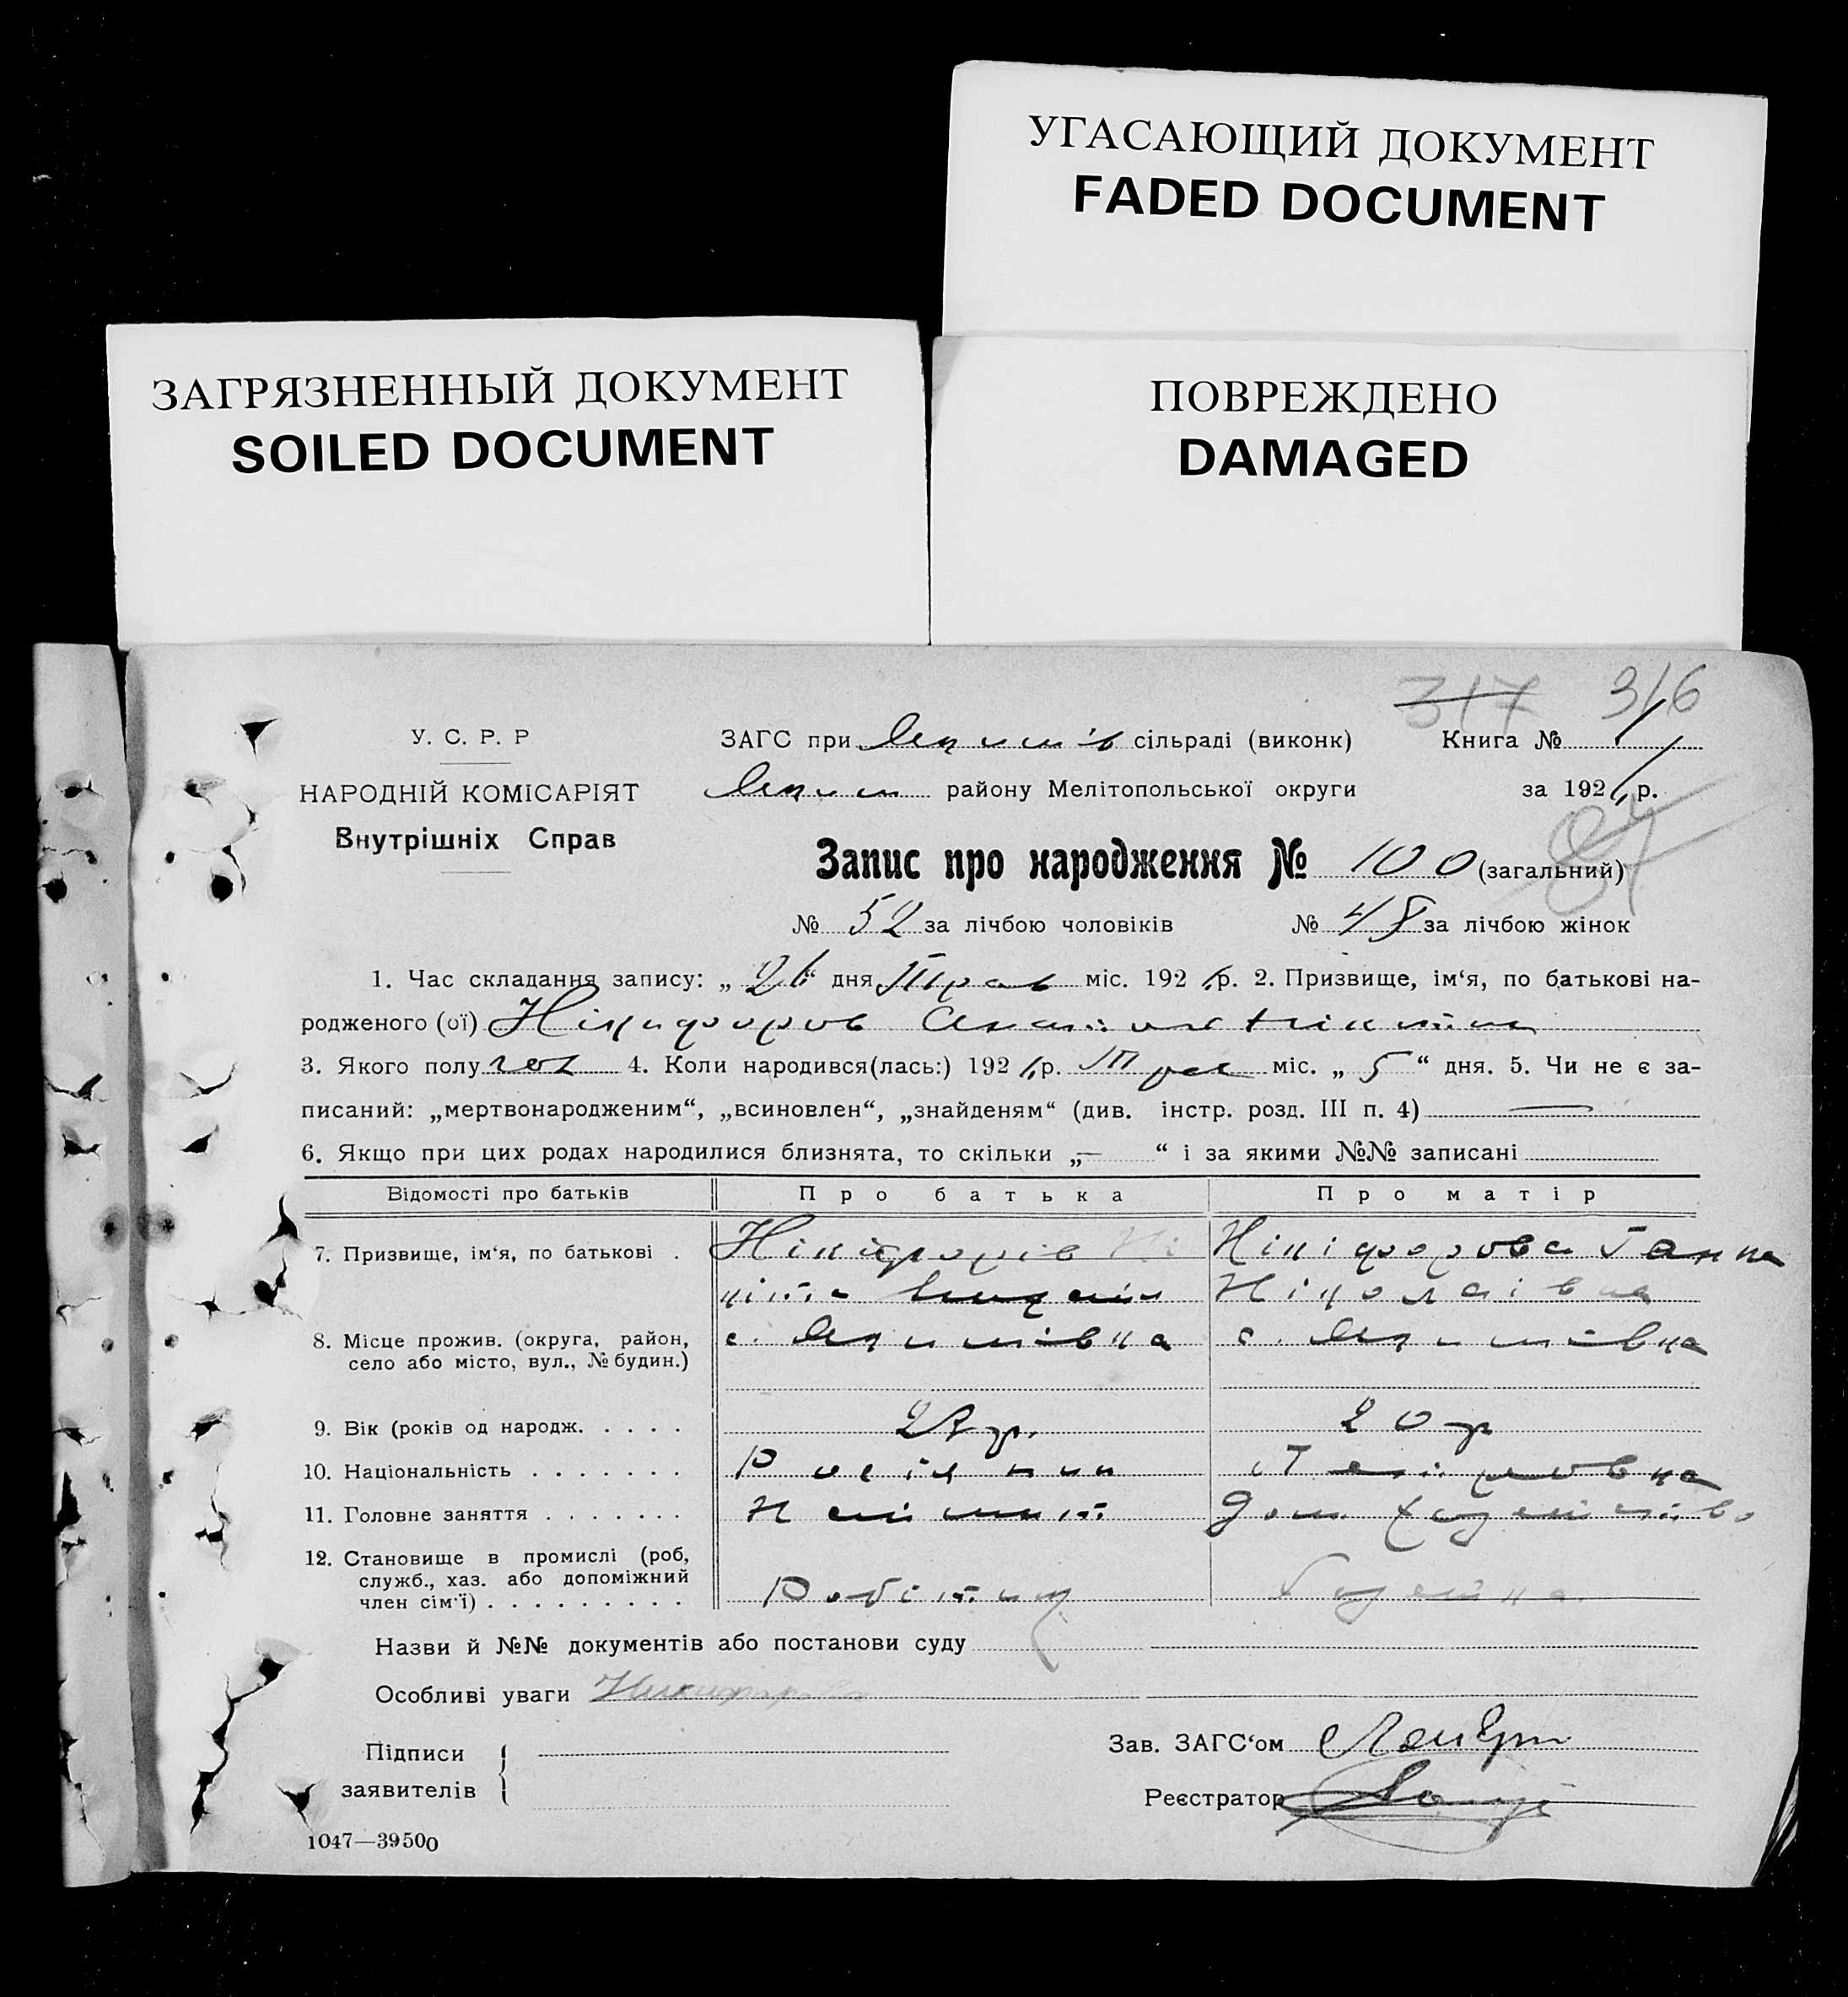 УГАСАЮЩИЙ ДОКУМЕНТ
FADED DOCUMENT
ЗАГРЯЗНЕННЫЙ ДОКУМЕНТ
SOILED DOCUMENT
ПОВРЕЖДЕНО
DAMAGED
317 316
У. С. Р. Р
ЗАГС при сільраді (виконк)
Книга № 1
НАРОДНІЙ КОМІСАРІЯТ
району Мелітопольської округи
за 192 р.
Внутрішніх Справ
Запис про народження № 100 (загальний)
№ 52 за лічбою чоловіків № 48 за лічбою жінок
1. Час складання запису: „ 26 “ дня Трав міс. 192 р. 2. Призвище, ім‘я, по батькові на-
родженого (ої) Нікифоров
3. Якого полу чол 4. Коли народився(лась:) 192 р. Трав міс. „ 5 “ дня. 5. Чи не є за-
писаний: „мертвонародженим“, „всиновлен“, „знайденям“ (див. інстр. розд. III п. 4) —
6. Якщо при цих родах народилися близнята, то скільки „— “ і за якими №№ записані
Відомості про батьків Про батька Про матір
7. Призвище, ім‘я, по батькові . Нікіфорів Нікіфорова Ганна
Ніколаівна
8. Місце прожив. (округа, район, с. Якимівка с. Якимівка
село або місто, вул., № будин.)
9. Вік (років од народж. . . . . р. 20 р
10. Національність . . . . . . . Росіянин
11. Головне заняття . . . . . . . дом. хазяйство
12. Становище в промислі (роб,
служб., хаз. або допоміжний
член сім‘ї) . . . . . . . . . Робітник Хазяйка.
Назви й №№ документів або постанови суду
Особливі уваги
Підписи
заявителів
Зав. ЗАГС‘ом
Реєстратор
1047—39500